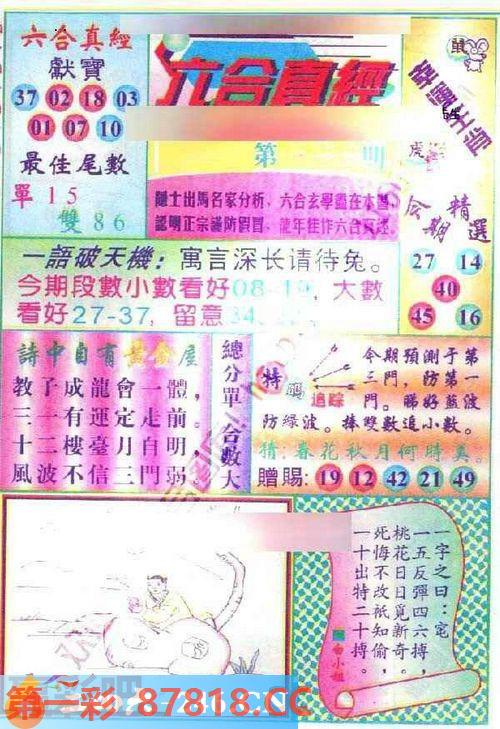 六合真經
獻寶
37 02 18 03
01 07 10
最佳尾數
單 1 5
雙 8 6
六合真經
第 期
鼠
虎
隱士出馬名家分析、六合玄學盡在本圖
認明正宗謹防假冒、龍年佳作六合真經
今期精選
27 14
40
45 16
一語破天機：寓言深长请待兔。
今期段數小數看好08-19, 大數
看好27-37, 留意34
詩中自有黃金屋
教子成龍會一體，
三一有運定走前。
十二樓臺月自明，
風波不信三門弱。
總分單 合數大
特碼
追踪
今期預測于第
三門，防第一
門。睇好藍波
防綠波。捧雙數追小數。
猜：春花秋月何時美。
贈賜：19 12 42 21 49
一字之曰：宅
一五反彈四六搏，
桃花日日覓新奇。
死悔不改祇知偷，
一十出特二十搏。
白小姐
第一彩 87818.CC